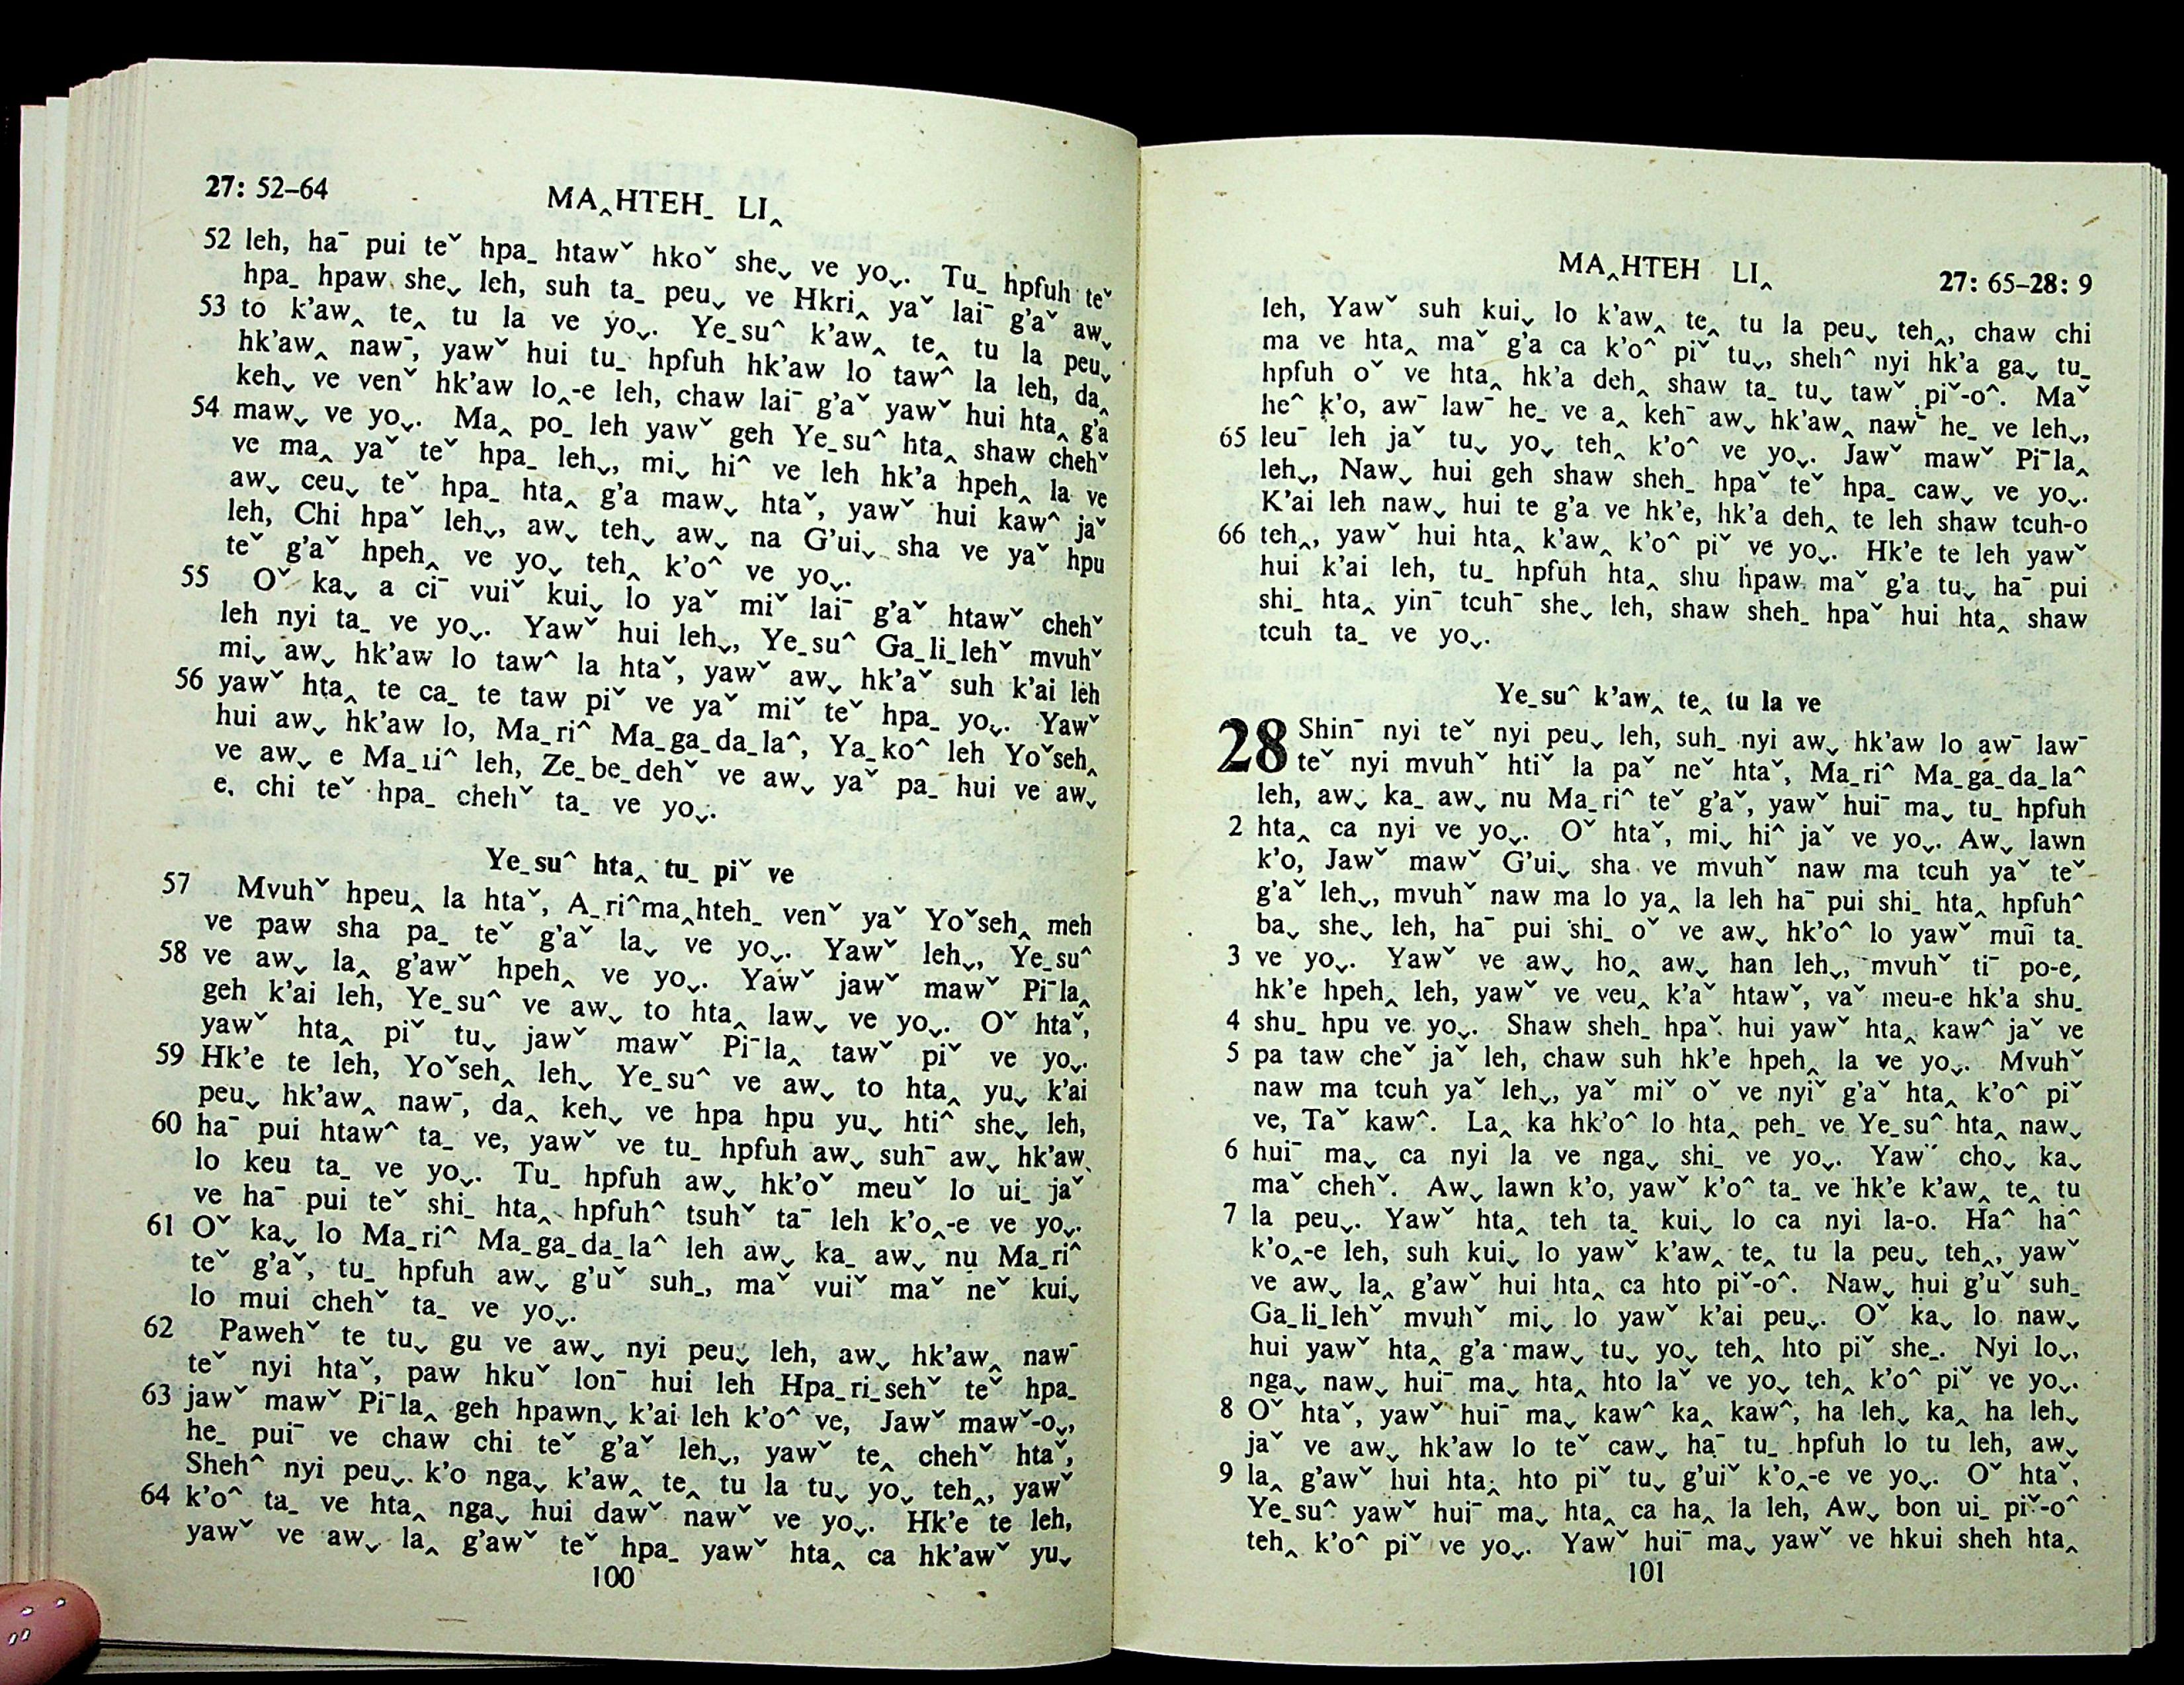 27: 52–64
MA‸HTEH_ LI‸
52 leh, ha¯ pui teˇ hpa_ htawˇ hkoˇ she˯ ve yo˯. Tu_ hpfuh teˇ
hpa_ hpaw she˯ leh, suh ta_ peu˯ ve Hkri‸ yaˇ lai¯ g’aˇ aw˯
53 to k’aw‸ te‸ tu la ve yo˯. Ye_suˆ k’aw‸ te‸ tu la peu˯
hk’aw‸ naw¯, yawˇ hui tu_ hpfuh hk’aw lo tawˆ la leh, da‸
keh˯ ve venˇ hk’aw lo‸-e leh, chaw lai¯ g’aˇ yawˇ hui hta‸ g’a
54 maw˯ ve yo˯. Ma‸ po_ leh yawˇ geh Ye_suˆ hta‸ shaw chehˇ
ve ma‸ yaˇ teˇ hpa_ leh˯, mi˯ hiˆ ve leh hk’a hpeh‸ la ve
aw˯ ceu˯ teˇ hpa_ hta‸ g’a maw˯ htaˇ, yawˇ hui kawˆ jaˇ
leh, Chi hpaˇ leh˯, aw˯ teh˯ aw˯ na G’ui˯ sha ve yaˇ hpu
teˇ g’aˇ hpeh‸ ve yo˯ teh‸ k’oˆ ve yo˯.
55 Oˇ ka˯ a ci¯ vuiˇ kui˯ lo yaˇ miˇ lai¯ g’aˇ htawˇ chehˇ
leh nyi ta_ ve yo˯. Yawˇ hui leh˯, Ye_suˆ Ga_li_lehˇ mvuhˇ
mi˯ aw˯ hk’aw lo tawˆ la htaˇ, yawˇ aw˯ hk’aˇ suh k’ai leh
56 yawˇ hta‸ te ca_ te taw piˇ ve yaˇ miˇ teˇ hpa_ yo˯. Yawˇ
hui aw˯ hk’aw lo, Ma_riˆ Ma_ga_da_laˆ, Ya_koˆ leh Yoˇseh‸
ve aw˯ e Ma_riˆ leh, Ze_be_dehˇ ve aw˯ yaˇ pa_ hui ve aw˯
e, chi teˇ hpa_ chehˇ ta_ ve yo˯.
Ye_suˆ hta‸ tu_ piˇ ve
57 Mvuhˇ hpeu‸ la htaˇ, A_riˆma‸hteh_ venˇ yaˇ Yoˇseh‸ meh
ve paw sha pa_ teˇ g’aˇ la˯ ve yo˯. Yawˇ leh˯, Ye_suˆ
58 ve aw˯ la‸ g’awˇ hpeh‸ ve yo˯. Yawˇ jawˇ mawˇ Pi¯la‸
geh k’ai leh, Ye_suˆ ve aw˯ to hta‸ law˯ ve yo˯. Oˇ htaˇ,
yawˇ hta‸ piˇ tu˯ jawˇ mawˇ Pi¯la‸ tawˇ piˇ ve yo˯.
59 Hk’e te leh, Yoˇseh‸ leh˯ Ye_suˆ ve aw˯ to hta‸ yu˯ k’ai
peu˯ hk’aw‸ naw¯, da‸ keh˯ ve hpa hpu yu˯ htiˆ she˯ leh,
60 ha¯ pui htawˆ ta_ ve, yawˇ ve tu_ hpfuh aw˯ suh¯ aw˯ hk’aw˯
lo keu ta_ ve yo˯. Tu_ hpfuh aw˯ hk’oˇ meuˇ lo ui_ jaˇ
ve ha¯ pui teˇ shi_ hta‸ hpfuhˆ tsuhˇ ta¯ leh k’o‸-e ve yo˯.
61 Oˇ ka˯ lo Ma_riˆ Ma_ga_da_laˆ leh aw˯ ka_ aw˯ nu Ma_riˆ
teˇ g’aˇ, tu_ hpfuh aw˯ g’uˇ suh_, maˇ vuiˇ maˇ neˇ kui˯
lo mui chehˇ ta_ ve yo˯.
62 Pawehˇ te tu˯ gu ve aw˯ nyi peu˯ leh, aw˯ hk’aw‸ naw¯
teˇ nyi htaˇ, paw hkuˇ lon¯ hui leh Hpa_ri_sehˇ teˇ hpa_
63 jawˇ mawˇ Pi¯la‸ geh hpawn˯ k’ai leh k’oˆ ve, Jawˇ mawˇ-o˯,
he_ pui¯ ve chaw chi teˇ g’aˇ leh˯, yawˇ te‸ chehˇ htaˇ,
Shehˆ nyi peu˯ k’o nga˯ k’aw‸ te‸ tu la tu˯ yo˯ teh‸, yawˇ
64 k’oˆ ta_ ve hta‸ nga˯ hui dawˇ nawˇ ve yo˯. Hk’e te leh,
yawˇ ve aw˯ la‸ g’awˇ teˇ hpa_ yawˇ hta‸ ca hk’awˇ yu˯
100
MA‸HTEH LI‸
27: 65–28: 9
leh, Yawˇ suh kui˯ lo k’aw‸ te‸ tu la peu˯ teh‸, chaw chi
ma ve hta‸ maˇ g’a ca k’oˆ piˇ tu˯, shehˆ nyi hk’a ga˯ tu_
hpfuh oˇ ve hta‸ hk’a deh‸ shaw ta_ tu˯ tawˇ piˇ-oˆ. Maˇ
heˆ k’o, aw¯ law¯ he_ ve a‸ keh¯ aw˯ hk’aw‸ naw¯ he_ ve leh˯,
65 leu¯ leh jaˇ tu˯ yo˯ teh‸ k’oˆ ve yo˯. Jawˇ mawˇ Pi¯la‸
leh˯, Naw˯ hui geh shaw sheh_ hpaˇ teˇ hpa_ caw˯ ve yo˯.
K’ai leh naw˯ hui te g’a ve hk’e, hk’a deh‸ te leh shaw tcuh-o
66 teh‸, yawˇ hui hta‸ k’aw‸ k’oˆ piˇ ve yo˯. Hk’e te leh yawˇ
hui k’ai leh, tu_ hpfuh hta‸ shu hpaw maˇ g’a tu˯ ha¯ pui
shi_ hta‸ yin¯ tcuh¯ she˯ leh, shaw sheh_ hpaˇ hui hta‸ shaw
tcuh ta_ ve yo˯.
Ye_suˆ k’aw‸ te‸ tu la ve
28 Shin¯ nyi teˇ nyi peu˯ leh, suh_ nyi aw˯ hk’aw lo aw¯ law¯
teˇ nyi mvuhˇ htiˇ la paˇ neˇ htaˇ, Ma_riˆ Ma_ga_da_laˆ
leh, aw˯ ka_ aw˯ nu Ma_riˆ teˇ g’aˇ, yawˇ hui¯ ma˯ tu_ hpfuh
2 hta‸ ca nyi ve yo˯. Oˇ htaˇ, mi˯ hiˆ jaˇ ve yo˯. Aw˯ lawn
k’o, Jawˇ mawˇ G’ui˯ sha ve mvuhˇ naw ma tcuh yaˇ teˇ
g’aˇ leh˯, mvuhˇ naw ma lo ya‸ la leh ha¯ pui shi_ hta‸ hpfuhˆ
ba˯ she˯ leh, ha¯ pui shi_ oˇ ve aw˯ hk’oˆ lo yawˇ mui ta_
3 ve yo˯. Yawˇ ve aw˯ ho‸ aw˯ han leh˯, mvuhˇ ti¯ po-e,
hk’e hpeh‸ leh, yawˇ ve veu‸ k’aˇ htawˇ, vaˇ meu-e hk’a shu_
4 shu_ hpu ve yo˯. Shaw sheh_ hpaˇ hui yawˇ hta‸ kawˆ jaˇ ve
5 pa taw cheˇ jaˇ leh, chaw suh hk’e hpeh‸ la ve yo˯. Mvuhˇ
naw ma tcuh yaˇ leh˯, yaˇ miˇ oˇ ve nyiˇ g’aˇ hta‸ k’oˆ piˇ
ve, Taˇ kawˆ. La‸ ka hk’oˆ lo hta‸ peh_ ve Ye_suˆ hta‸ naw˯
6 hui¯ ma˯ ca nyi la ve nga˯ shi_ ve yo˯. Yawˇ cho˯ ka˯
maˇ chehˇ. Aw˯ lawn k’o, yawˇ k’oˆ ta_ ve hk’e k’aw‸ te‸ tu
7 la peu˯. Yawˇ hta‸ teh ta_ kui˯ lo ca nyi la-o. Haˆ haˆ
k’o‸-e leh, suh kui˯ lo yawˇ k’aw‸ te‸ tu la peu˯ teh‸, yawˇ
ve aw˯ la‸ g’awˇ hui hta‸ ca hto piˇ-oˆ. Naw˯ hui g’uˇ suh_
Ga_li_lehˇ mvuhˇ mi˯ lo yawˇ k’ai peu˯. Oˇ ka˯ lo naw˯
hui yawˇ hta‸ g’a maw˯ tu˯ yo˯ teh‸ hto piˇ she_. Nyi lo˯,
nga˯ naw˯ hui¯ ma˯ hta‸ hto laˇ ve yo˯ teh‸ k’oˆ piˇ ve yo˯.
8 Oˇ htaˇ, yawˇ hui¯ ma˯ kawˆ ka‸ kawˆ, ha leh˯ ka‸ ha leh˯
jaˇ ve aw˯ hk’aw lo teˇ caw˯ ha¯ tu_ hpfuh lo tu leh, aw˯
9 la‸ g’awˇ hui hta‸ hto piˇ tu˯ g’uiˇ k’o‸-e ve yo˯. Oˇ htaˇ,
Ye_suˆ yawˇ hui¯ ma˯ hta‸ ca ha‸ la leh, Aw˯ bon ui_ piˇ-oˆ
teh‸ k’oˆ piˇ ve yo˯. Yawˇ hui¯ ma˯ yawˇ ve hkui sheh hta‸
101